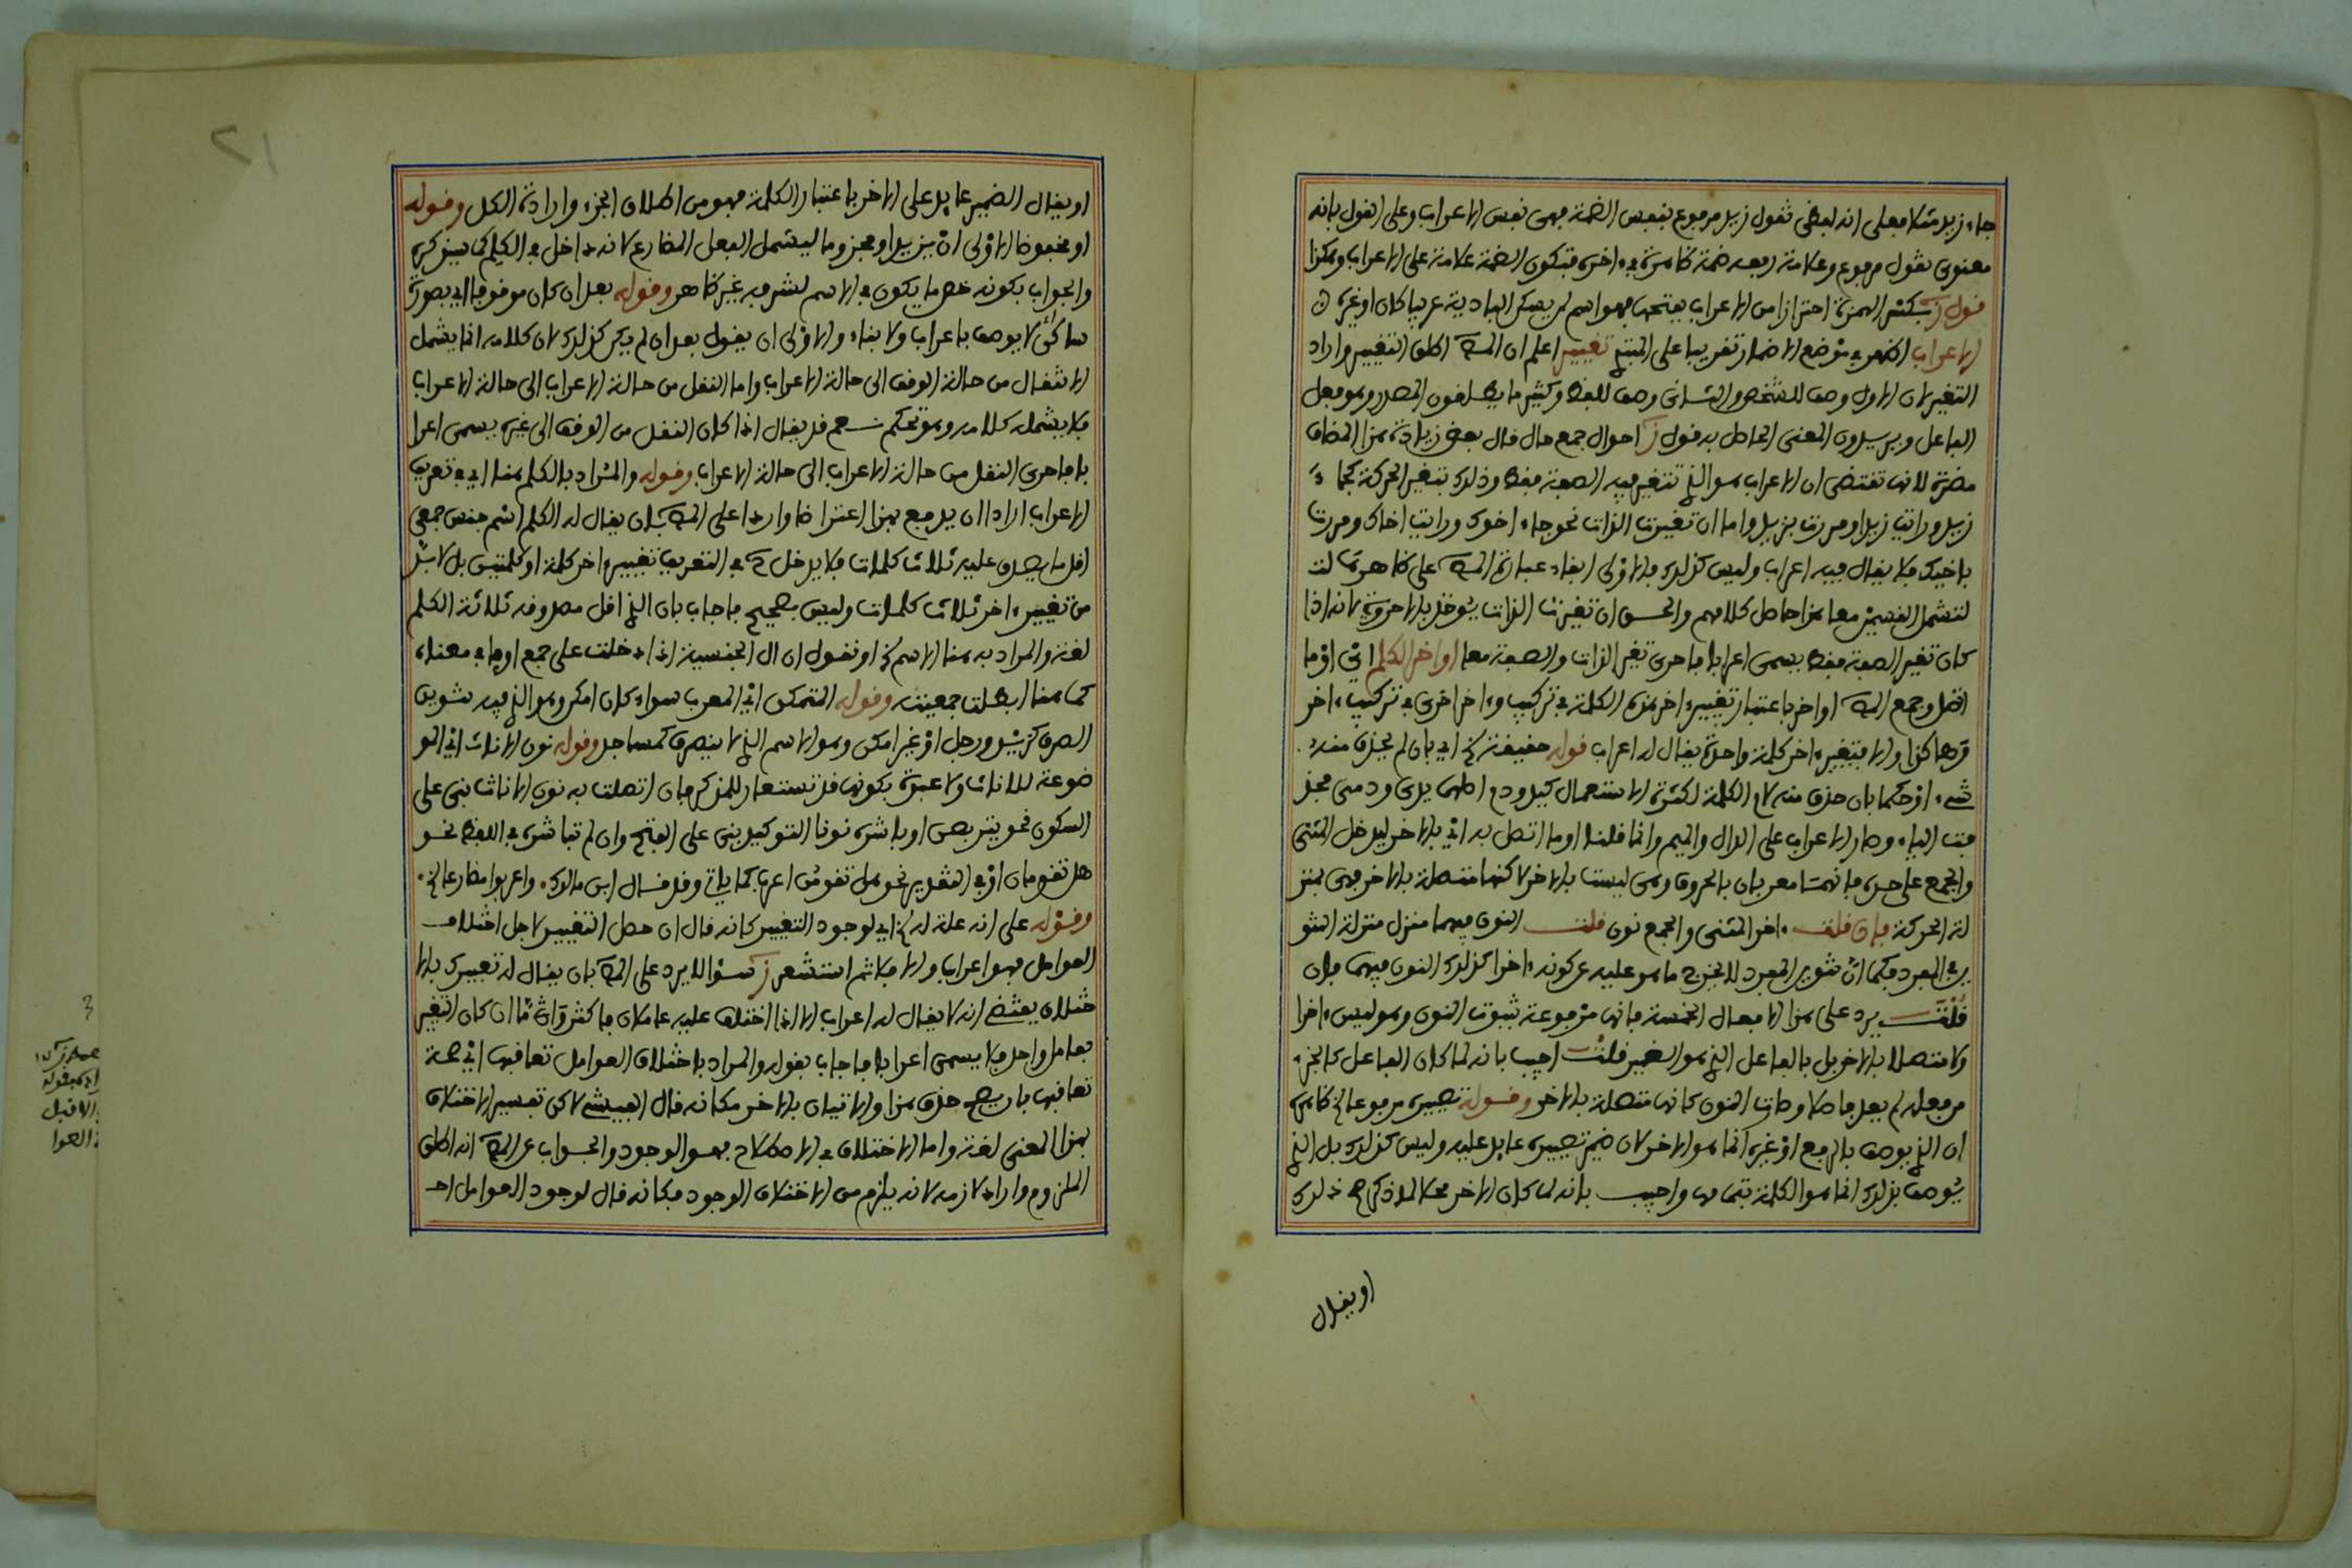 جاء زيد مثلا فعلى انه لفظي تقول زيد مرفوع بنفس الضمة فهي نفس الاعراب وعلى القول بانه
معنوي تقول مرفوع وعلامة رفعه ضمة ظاهرة في ءاخره فتكون الضمة علامة على الاعراب وهكذا
قول ز بكسر الهمزة احترازا من الاعراب بفتحها فهو اسم لمن يسكن البادية عربيا كان او غيره
الاعراب اظهر في موضع الاضمار تقريبا على المبتدئ تغيير اعلم ان المص اطلق التغيير واراد
التغير لان الاول وصف للشخص والثاني وصف للفظ وكثير ما يطلقون المصدر وهو فعل
الفاعل ويريدون المعنى الحاصل به قول ز احوال جمع حال قال بعض زيادة هذا المضاف
مضرة لانها تقتضي ان الاعراب هو الذي تتغير فيه الصفة فقط وذلك بتغير الحركة كجاء
زيد ورايت زيدا ومررت بزيد واما ان تغيرت الذات نحو جاء اخوك ورايت اخاك ومررت
باخيك فلا يقال فيه اعراب وليس كذلك فالاولى ابقاء عبارة المص على ظاهرها
لتشمل القسمين معا هذا حاصل كلامهم والحق ان تغيرت الذات يوخذ بالاحروية لانه اذا
كان تغير الصفة فقط يسمى اعرابا فاحرى تغير الذات والصفة معا اواخر الكلم اي او ما
اتصل وجمع المص اواخر باعتبار تغيير ءاخر هذه الكلمة في تركيب وءاخر اخرى في تركيب ءاخر
وهاكذا والا فتغيير ءاخر كلمة واحدة يقال له اعراب قوله حقيقة الخ اي بان لم يحذف منه
شيء او حكما بان حذف منه لام الكلمة لكثرة الاستعمال كيد ودم اصلهما يدي ودمي فحذ
فت الياء وصار الاعراب على الدال والميم وانما قلنا او ما اتصل به اي بالاخر ليدخل المثنى
والجمع على حده فانهما معربان بالحروف وهي ليست بالاخر لاكنها متصلة بالاخر فهي بمنز
لة الحركة فان قلت ءاخر المثنى والجمع نون قلت النون فيهما منزل منزلة التنو
ين في المفرد فكما ان تنوين المفرد لا يخرج ما هو عليه عن كونه ءاخرا كذلك النون فيهما فان
قلت يرد على هذا الافعال الخمسة فانها مرفوعة بثبوت النون وهو ليس ءاخرا
ولا متصلا بالاخر بل بالفاعل الذي هو الضمير قلت اجيب بانه لما كان الفاعل كالجزء
من فعله لم يعد فاصلا وصارت النون كانها متصلة بالاخر وقوله تصييره مرفوعا الخ ظاهره
ان الذي يوصف بالرفع او غيره انما هو الاخر لان ضمير تصييره عايد عليه وليس كذلك بل الذي
يوصف بذلك انما هو الكلمة بتمامها واجيب بانه لما كان الاخر محلا لما ذكر صح ذلك
او يقال
او يقال الضمير عايد على الاخر باعتبار الكلمة فهو من اطلاق الجزء وارادة الكل وقوله
او مخفوضا الاولى ان يزيد او مجزوما ليشمل الفعل المضارع لانه داخل في الكلم كما سيذكره
والجواب بكونه خص ما يكون في الاسم لشرفه غير ظاهر وقوله بعد ان كان موقوفا اي بصورة
ساكن لا يوصف باعراب ولا بناء والاولى ان يقول بعد ان لم يكن كذلك لان كلامه انما يشمل
الانتقال من حالة الوقف الى حالة الاعراب واما النقل من حالة الاعراب الى حالة الاعراب
فلا يشمله كلامه وهو تحكم نعم قد يقال اذا كان النقل من الوقف الى غيره يسمى اعرا
با فاحرى النقل من حالة الاعراب الى حالة الاعراب وقوله والمراد بالكلم هنا اي في تعريف
الاعراب اراد ان يدفع بهذا اعتراضا واردا على المص بان يقال له الكلم اسم جنس جمعي
اقل ما يصدق عليه ثلاث كلمات فلا يدخل ح في التعريف تغيير ءاخر كلمة او كلمتين بل لا بد
من تغيير ءاخر ثلاث كلمات وليس بصحيح فاجاب بان الذي اقل مصدوقه ثلاثة الكلم
لغة والمراد به هنا الاسم الخ او نقول ان ال الجنسية اذا دخلت على جمع او ما في معناه
كما هنا ابطلت جمعيته وقوله المتمكن اي المعرب سواء كان امكن وهو الذي فيه تنوين
الصرف كزيد ورجل او غير امكن وهو الاسم الذي لا ينصرف كمساجد وقوله نون الاناث اي المو
ضوعة للاناث ولا عبرة بكونها قد تستعار للمذكر فان اتصلت به نون الاناث بني على
السكون نحو يتربصن او باشره نونا التوكيد بني على الفتح وان لم تباشره في اللفظ نحو
هل تقومان او في التقدير نحو هل تقومن اعرب كما ياتي وقد قال ابن مالك . واعربوا مضارعا الخ .
وقوله على انه علة له الخ اي لوجود التغيير كانه قال ان حصل التغيير لاجل اختلاف
العوامل فهو اعراب والا فلا ثم استشعر ز سؤالا يرد على المص بان يقال له تعبيرك بالا
ختلاف يقتضي انه لا يقال له اعراب الا اذا اختلف عليه عاملان فاكثر واما ان كان التغير
بعامل واحد فلا يسمى اعرابا فاجاب بقوله والمراد باختلاف العوامل تعاقبها اي صحة
تعاقبها بان يصح حذف هذا والاتيان بالاخر مكانه قال الفيشي لاكن تفسير الاختلاف
بهذا المعنى لغة واما الاختلاف في الاصطلاح فهو الوجود والجواب عن المص انه اطلق
الملزوم واراد لازمه لانه يلزم من الاختلاف الوجود فكانه قال لوجود العوامل احـ